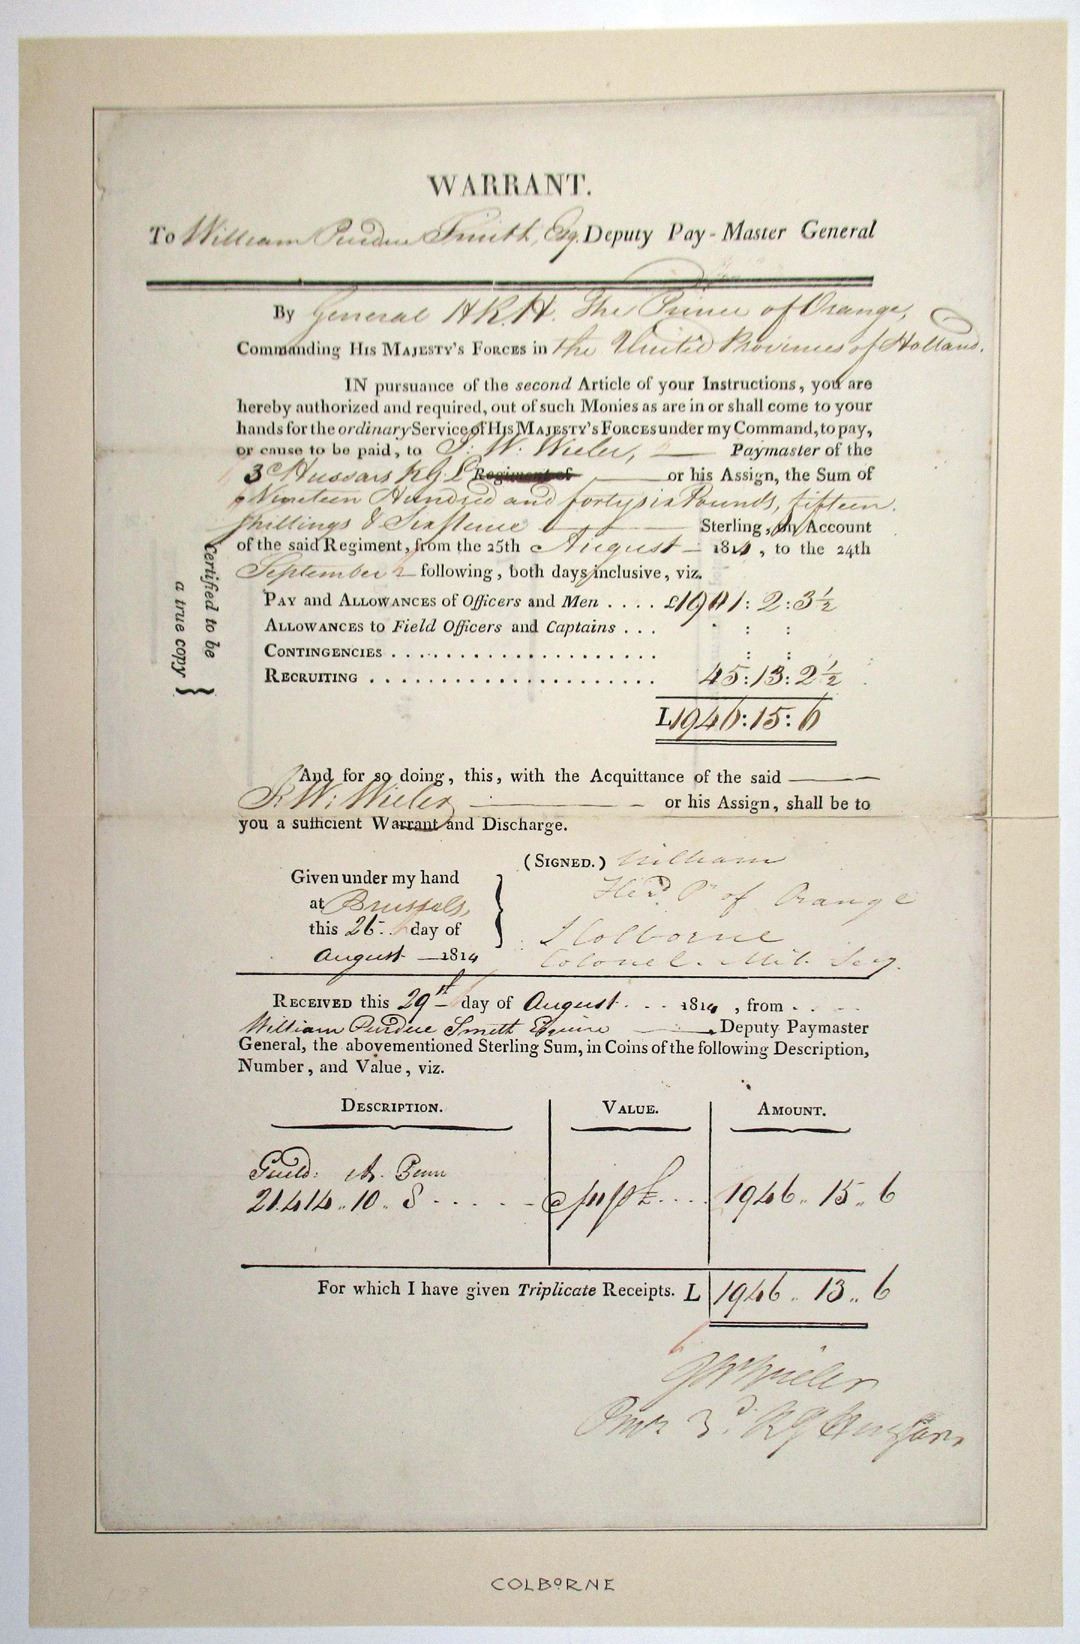 WARRANT.
To William Purdue Smith, Esq. Deputy Pay-Master General
By General H.R.H. The Prince of Orange,
Commanding His Majesty's Forces in the United Provinces of Holland.
IN pursuance of the second Article of your Instructions, you are
hereby authorized and required, out of such Monies as are in or shall come to your
hands for the ordinary Service of His Majesty's Forces under my Command, to pay,
or cause to be paid, to J. W. Wieler, — Paymaster of the
3 Hussars K G L Regiment of — or his Assign, the Sum of
Nineteen Hundred and forty six Pounds, fifteen
Shillings & Six pence — Sterling, on Account
of the said Regiment, from the 25th August — 1814, to the 24th
September — following, both days inclusive, viz.
Pay and Allowances of Officers and Men .... £1901: 2: 3½
Allowances to Field Officers and Captains ... : :
Contingencies .................... : :
Recruiting .................... 45: 13: 2½
L1946: 15: 6
certified to be
a true copy }
And for so doing, this, with the Acquittance of the said —
J. W: Wieler — or his Assign, shall be to
you a sufficient Warrant and Discharge.
(Signed.) William
Given under my hand
Hed. Pr of Orange
at Brussels,
this 26 day of
J Colborne
August — 1814
Colonel. Mil. Secy.
Received this 29st day of August ... 1814, from ...
William Purdue Smith Esquire — Deputy Paymaster
General, the abovementioned Sterling Sum, in Coins of the following Description,
Number, and Value, viz.
Description. Value. Amount.
Guild: St. Penn
21.414.. 10.. 8 ..... £ ... 1946.. 15.. 6
For which I have given Triplicate Receipts. L 1946.. 13.. 6
JW Wieler
Pmr 3d. KG Hussars
COLBORNE